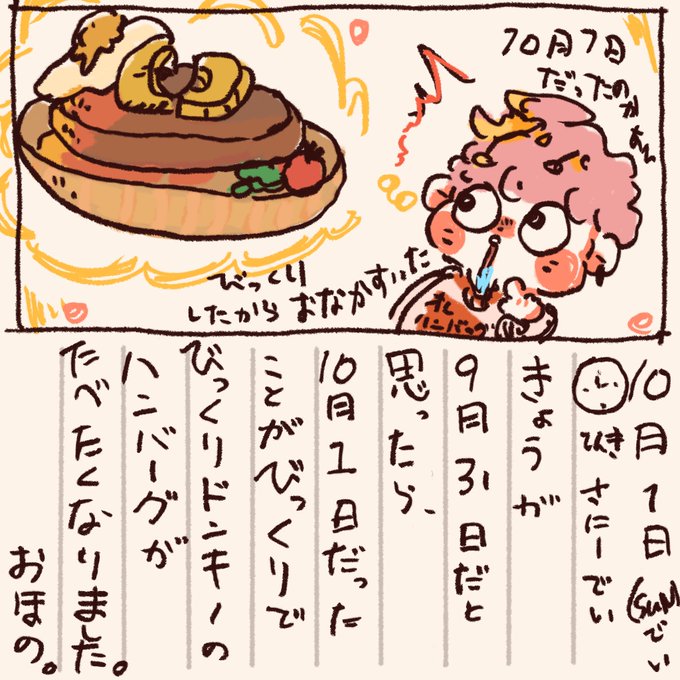 10月1日
だったのか
びっくり
したから
おなかすいた
ハンバーグ
10月1日(SUNでい
てんき さにーでい
きょうが
9月31日だと
思ったら、
10月1日だった
ことがびっくりで
びっくりドンキーの
ハンバーグが
たべたくなりました。
おほの。